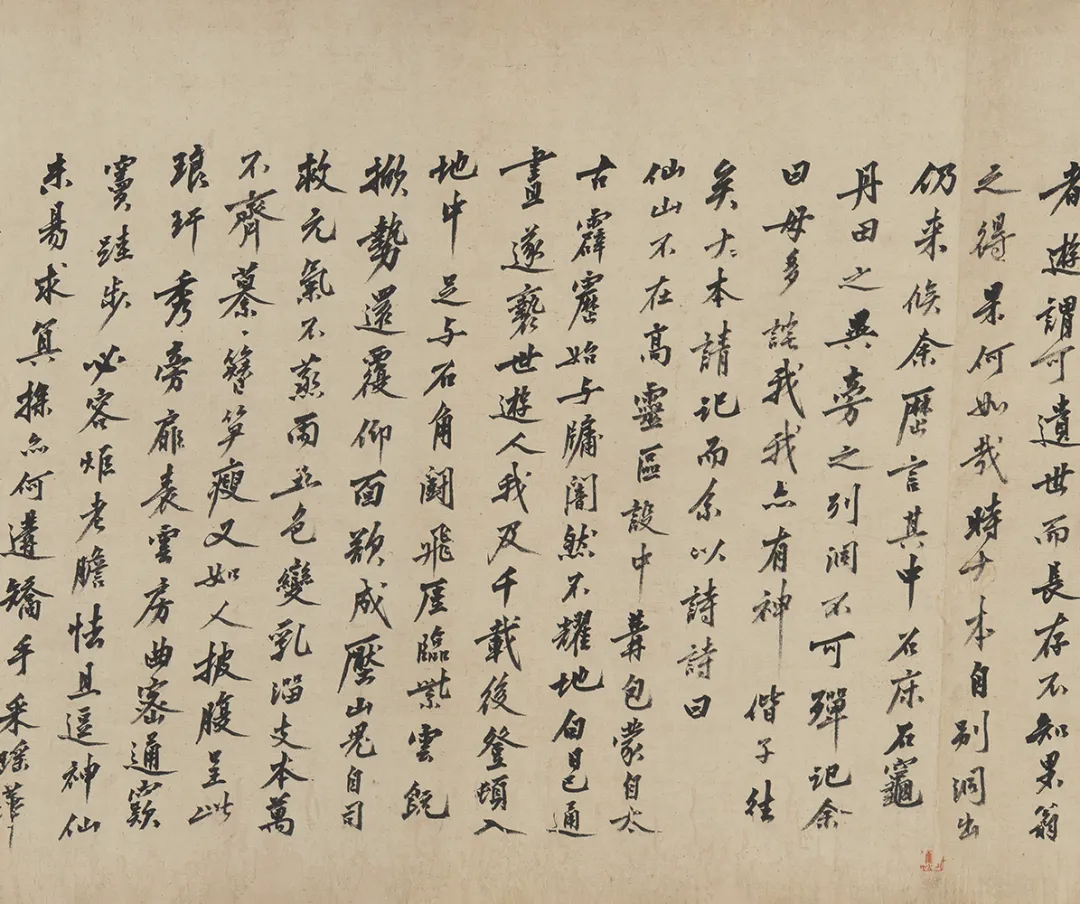 者遊謂可遺世而長存不知果翁
之得果何如哉時大本自別洞出
仍来候余歷言其中石床石竈
丹田之異旁之別洞不可殫記余
曰毋多談我我亦有神偕子往
矣大本請記而系以詩詩曰
仙山不在高靈區設中冓包蒙自太
古霹靂始与牖闇然不耀地白日通
晝遂褻世遊人我及千載後登頓入
地中足与石角鬪飛厓臨紫雲飥
掀勢還覆仰面欵成壓山鬼自司
救元氣不蒸雨五色變乳溜支本萬
不齊纂〻簪笋瘦又如人披腹呈此
琅玕秀旁扉表雲房曲密通窽
竇跬步必容炬老膽怯且逗神仙
未易求冥探亦何遘矯手采瑤華